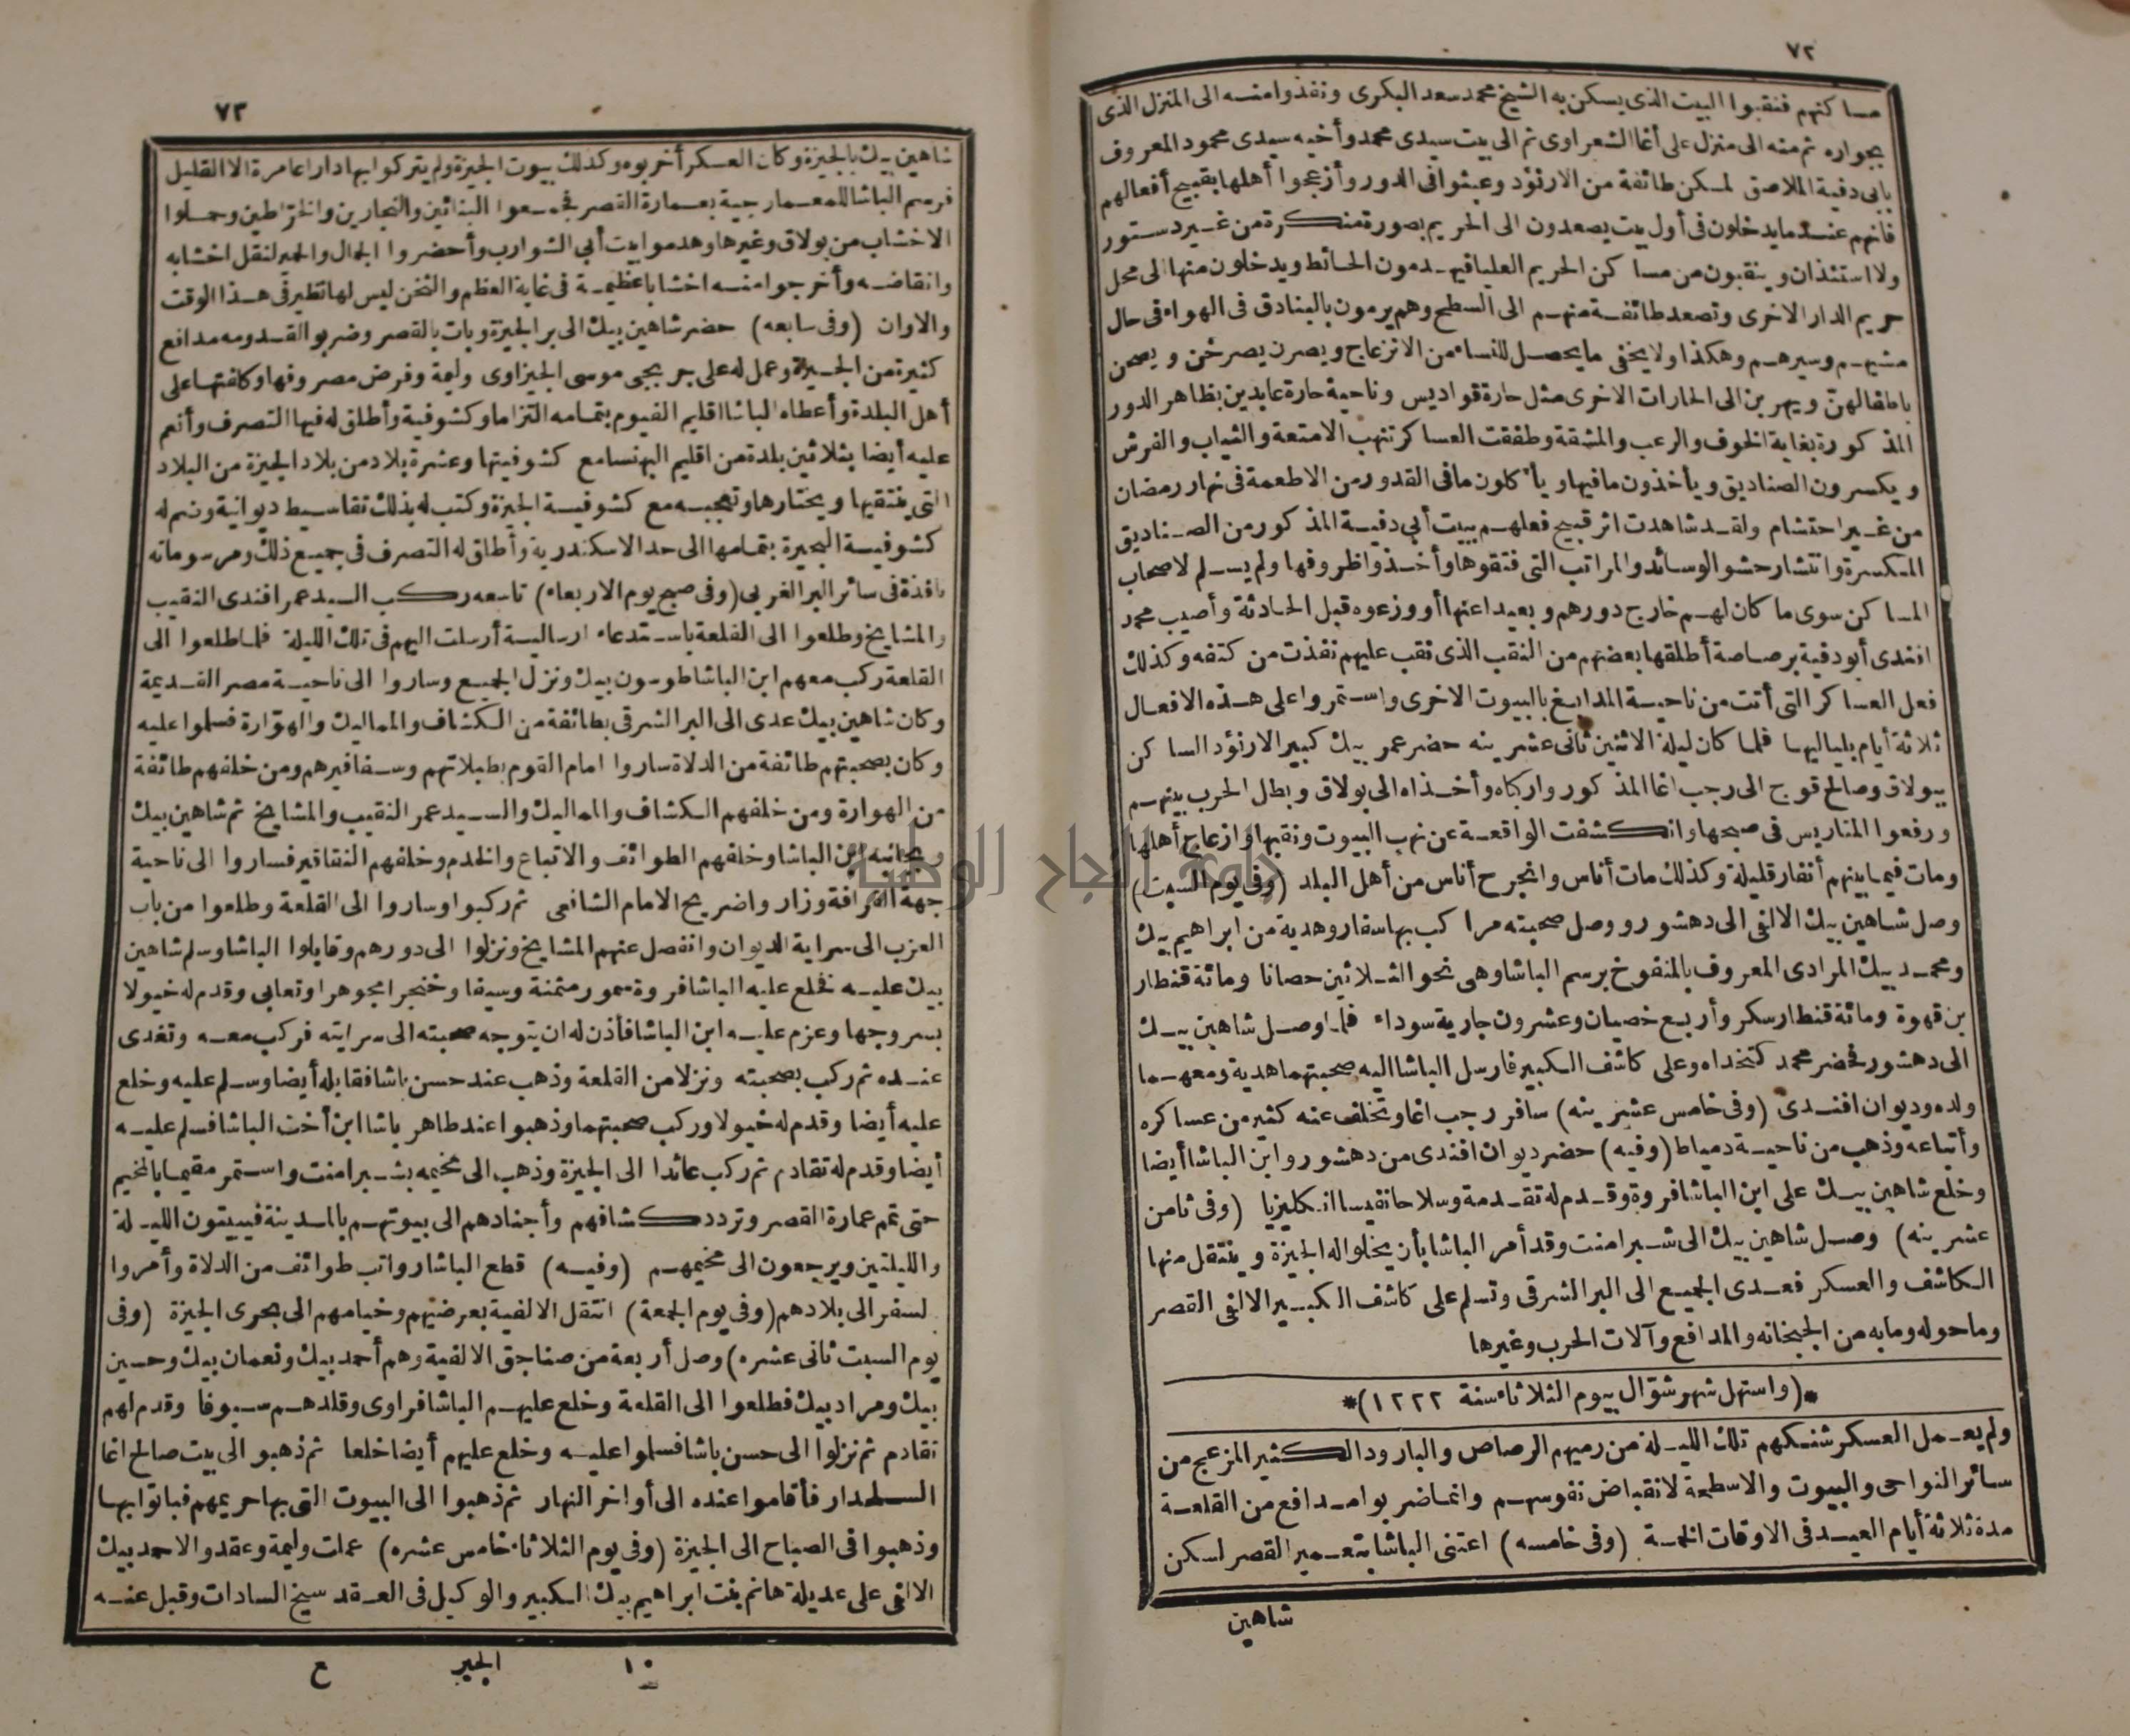 ٧٢
مساكنهم فنقبوا البيت الذى يسكن به الشيخ محمد سعد البكرى ونفذوا منه الى المنزل الذى
بجواره ثم منه الى منزل على أغا الشعراوى ثم الى بيت سيدى محمد وأخيه سيدى محمود المعروف
بابى دفية الملاصق لمسكن طائفة من الارنؤد وعبثوا فى الدور وأزعجوا أهلها بقبيح أفعالهم
فانهم عند ما يدخلون فى أول بيت يصعدون الى الحريم بصورة منكرة من غير دستور
ولا استئذان وينقبون من مساكن الحريم العليا فيهدمون الحائط ويدخلون منها الى محل
حريم الدار الاخرى وتصعد طائفة منهم الى السطح وهم يرمون بالبنادق فى الهواء فى حال
مشيهم وسيرهم وهكذا ولا يخفى ما يحصل للنساء من الانزعاج ويصرن يصرخن ويصحن
باطفالهن ويهربن الى الحارات الاخرى مثل حارة قواديس وناحية حارة عابدين بظاهر الدور
المذكورة بغاية الخوف والرعب والمشقة وطفقت العساكر تنهب الامتعة والثياب والفرش
ويكسرون الصناديق ويأخذون ما فيها ويأكلون ما فى القدور من الاطعمة فى نهار رمضان
من غير احتشام ولقد شاهدت اثر قبيح فعلهم ببيت أبى دفية المذكور من الصناديق
المكسرة وانتشار حشو الوسائد والمراتب التى فتقوها وأخذوا ظروفها ولم يسلم لاصحاب
المساكن سوى ما كان لهم خارج دورهم وبعيدا عنها أو وزعوه قبل الحادثة وأصيب محمد
افندى أبو دفية برصاصة أطلقها بعضهم من النقب الذى نقب عليهم نفذت من كتفه وكذلك
فعل العساكر التى أتت من ناحية المدابغ بالبيوت الاخرى واستمروا على هذه الافعال
ثلاثة أيام بلياليها فلما كان ليلة الاثنين ثانى عشرينه حضر عمر بيك كبير الارنؤد الساكن
ببولاق وصالح قوج الى رجب اغا المذكور واركباه وأخذاه الى بولاق وبطل الحرب بينهم
ورفعوا المتاريس فى صبحها وانكشفت الواقعة عن نهب البيوت ونقبها وازعاج أهلها
ومات فيما بينهم أنفار قليلة وكذلك مات أناس وانجرح أناس من أهل البلد (وفى يوم السبت)
وصل شاهين بيك الالفى الى دهشور ووصل صحبته مراكب بها سفار وهدية من ابراهيم بيك
ومحمد بيك المرادى المعروف بالمنفوخ برسم الباشا وهى نحو الثلاثين حصانا ومائة قنطار
بن قهوة ومائة قنطار سكر وأربع خصيان وعشرون جارية سوداء فلما وصل شاهين بيك
الى دهشور فحضر محمد كتخداه وعلى كاشف الكبير فارسل الباشا اليه صحبتهما هدية ومعهما
ولده وديوان افندى (وفى خامس عشرينه) سافر رجب اغا وتخلف عنه كثير من عساكره
وأتباعه وذهب من ناحية دمياط (وفيه) حضر ديوان افندى من دهشور وابن الباشا أيضا
وخلع شاهين بيك على ابن الباشا فروة وقدم له تقدمة وسلاحا نفيسا انكليزيا (وفى ثامن
عشرينه) وصل شاهين بيك الى شبرامنت وقد أمر الباشا بأن يخلوا له الجيزة وينتقل منها
الكاشف والعسكر فعدى الجميع الى البر الشرقى وتسلم على كاشف الكبير الالفى القصر
وما حوله وما به من الجبخانه والمدافع وآلات الحرب وغيرها
*(واستهل شهر شوّال بيوم الثلاثاء سنة ١٢٢٢)*
ولم يعمل العسكر شنكهم تلك الليلة من رميهم الرصاص والبارود الكثير المزعج من
سائر النواحى والبيوت والاسطحة لانقباض نفوسهم وانما ضربوا مدافع من القلعة
مدة ثلاثة أيام العيد فى الاوقات الخمسة (وفى خامسه) اعتنى الباشا بتعمير القصر لسكن
شاهين
٧٣
شاهين بيك بالجيزة وكان العسكر أخربوه وكذلك بيوت الجيزة ولم يتركوا بها دارا عامرة الا القليل
فرسم الباشا للمعمارجية بعمارة القصر فجمعوا البنائين والنجارين والخراطين وحملوا
الاخشاب من بولاق وغيرها وهدموا بيت أبى الشوارب وأحضروا الجمال والحمير لنقل اخشابه
وانقاضه وأخرجوا منه اخشابا عظيمة فى غاية العظم والثخن ليس لها نظير فى هذا الوقت
والاوان (وفى سابعه) حضر شاهين بيك الى بر الجيزة وبات بالقصر وضربوا لقدومه مدافع
كثيرة من الجيزة وعمل له على جربجى موسى الجيزاوى وليمة وفرض مصروفها وكلفتها على
أهل البلدة وأعطاه الباشا اقليم الفيوم بتمامه التزاما وكشوفية وأطلق له فيها التصرف وأنعم
عليه أيضا بثلاثين بلدة من اقليم البهنسا مع كشوفيتها وعشرة بلاد من بلاد الجيزة من البلاد
التى ينتقيها ويختارها وتعجبه مع كشوفية الجيزة وكتب له بذلك تقاسيط ديوانية وضم له
كشوفية البحيرة بتمامها الى حد الاسكندرية وأطلق له التصرف فى جميع ذلك ومرسوماته
نافذة فى سائر البر الغربى (وفى صبح يوم الاربعاء) تاسعه ركب السيد عمر افندى النقيب
والمشايخ وطلعوا الى القلعة باستدعاء ارسالية أرسلت اليهم فى تلك الليلة فلما طلعوا الى
القلعة ركب معهم ابن الباشا طوسون بيك ونزل الجميع وساروا الى ناحية مصر القديمة
وكان شاهين بيك عدى الى البر الشرقى بطائفة من الكشاف والمماليك والهوّارة فسلموا عليه
وكان بصحبتهم طائفة من الدلاة ساروا امام القوم بطبلاتهم وسفافيرهم ومن خلفهم طائفة
من الهوارة ومن خلفهم الكشاف والمماليك والسيد عمر النقيب والمشايخ ثم شاهين بيك
وبجانبه ابن الباشا وخلفهم الطوائف والاتباع والخدم وخلفهم النقاقير فساروا الى ناحية
جهة القرافة وزاروا ضريح الامام الشافعى ثم ركبوا وساروا الى القلعة وطلعوا من باب
العزب الى سراية الديوان وانفصل عنهم المشايخ ونزلوا الى دورهم وقابلوا الباشا وسلم شاهين
بيك عليه فخلع عليه الباشا فروة سمور مثمنة وسيفا وخنجرا مجوهرا وتعابى وقدم له خيولا
بسروجها وعزم عليه ابن الباشا فأذن له ان يتوجه صحبته الى سرايته فركب معه وتغدى
عنده ثم ركب بصحبته ونزلا من القلعة وذهب عند حسن باشا فقابله أيضا وسلم عليه وخلع
عليه أيضا وقدم له خيولا وركب صحبتهما وذهبوا عند طاهر باشا ابن أخت الباشا فسلم عليه
أيضا وقدم له تقادم ثم ركب عائدا الى الجيزة وذهب الى مخيمه بشبرامنت واستمر مقيما بالمخيم
حتى تمم عمارة القصر وتردد كشافهم وأجنادهم الى بيوتهم بالمدينة فيبيتون الليلة
والليلتين ويرجعون الى مخيمهم (وفيه) قطع الباشا رواتب طوائف من الدلاة وأمروا
لسفر الى بلادهم (وفى يوم الجمعة) انتقل الالفية بعرضيهم وخيامهم الى بحرى الجيزة (وفى
يوم السبت ثانى عشره) وصل أربعة من صناجق الالفية وهم أحمد بيك ونعمان بيك وحسين
بيك ومراد بيك فطلعوا الى القلعة وخلع عليهم الباشا فراوى وقلدهم سيوفا وقدم لهم
تقادم ثم نزلوا الى حسن باشا فسلموا عليه وخلع عليهم أيضا خلعا ثم ذهبو الى بيت صالح اغا
السلحدار فأقاموا عنده الى أواخر النهار ثم ذهبوا الى البيوت التى بها حريمهم فباتوا بها
وذهبوا فى الصباح الى الجيزة (وفى يوم الثلاثاء خامس عشره) عملت وليمة وعقدوا لاحمد بيك
الالفى على عديلة هانم بنت ابراهيم بيك الكبير والوكيل فى العقد شيخ السادات وقبل عنه
١٠ الجبر ع
جامعة النجاح الوطنية